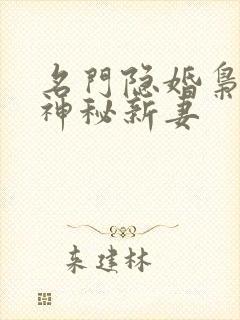 名門隐婚枭
神秘新妻
来建林